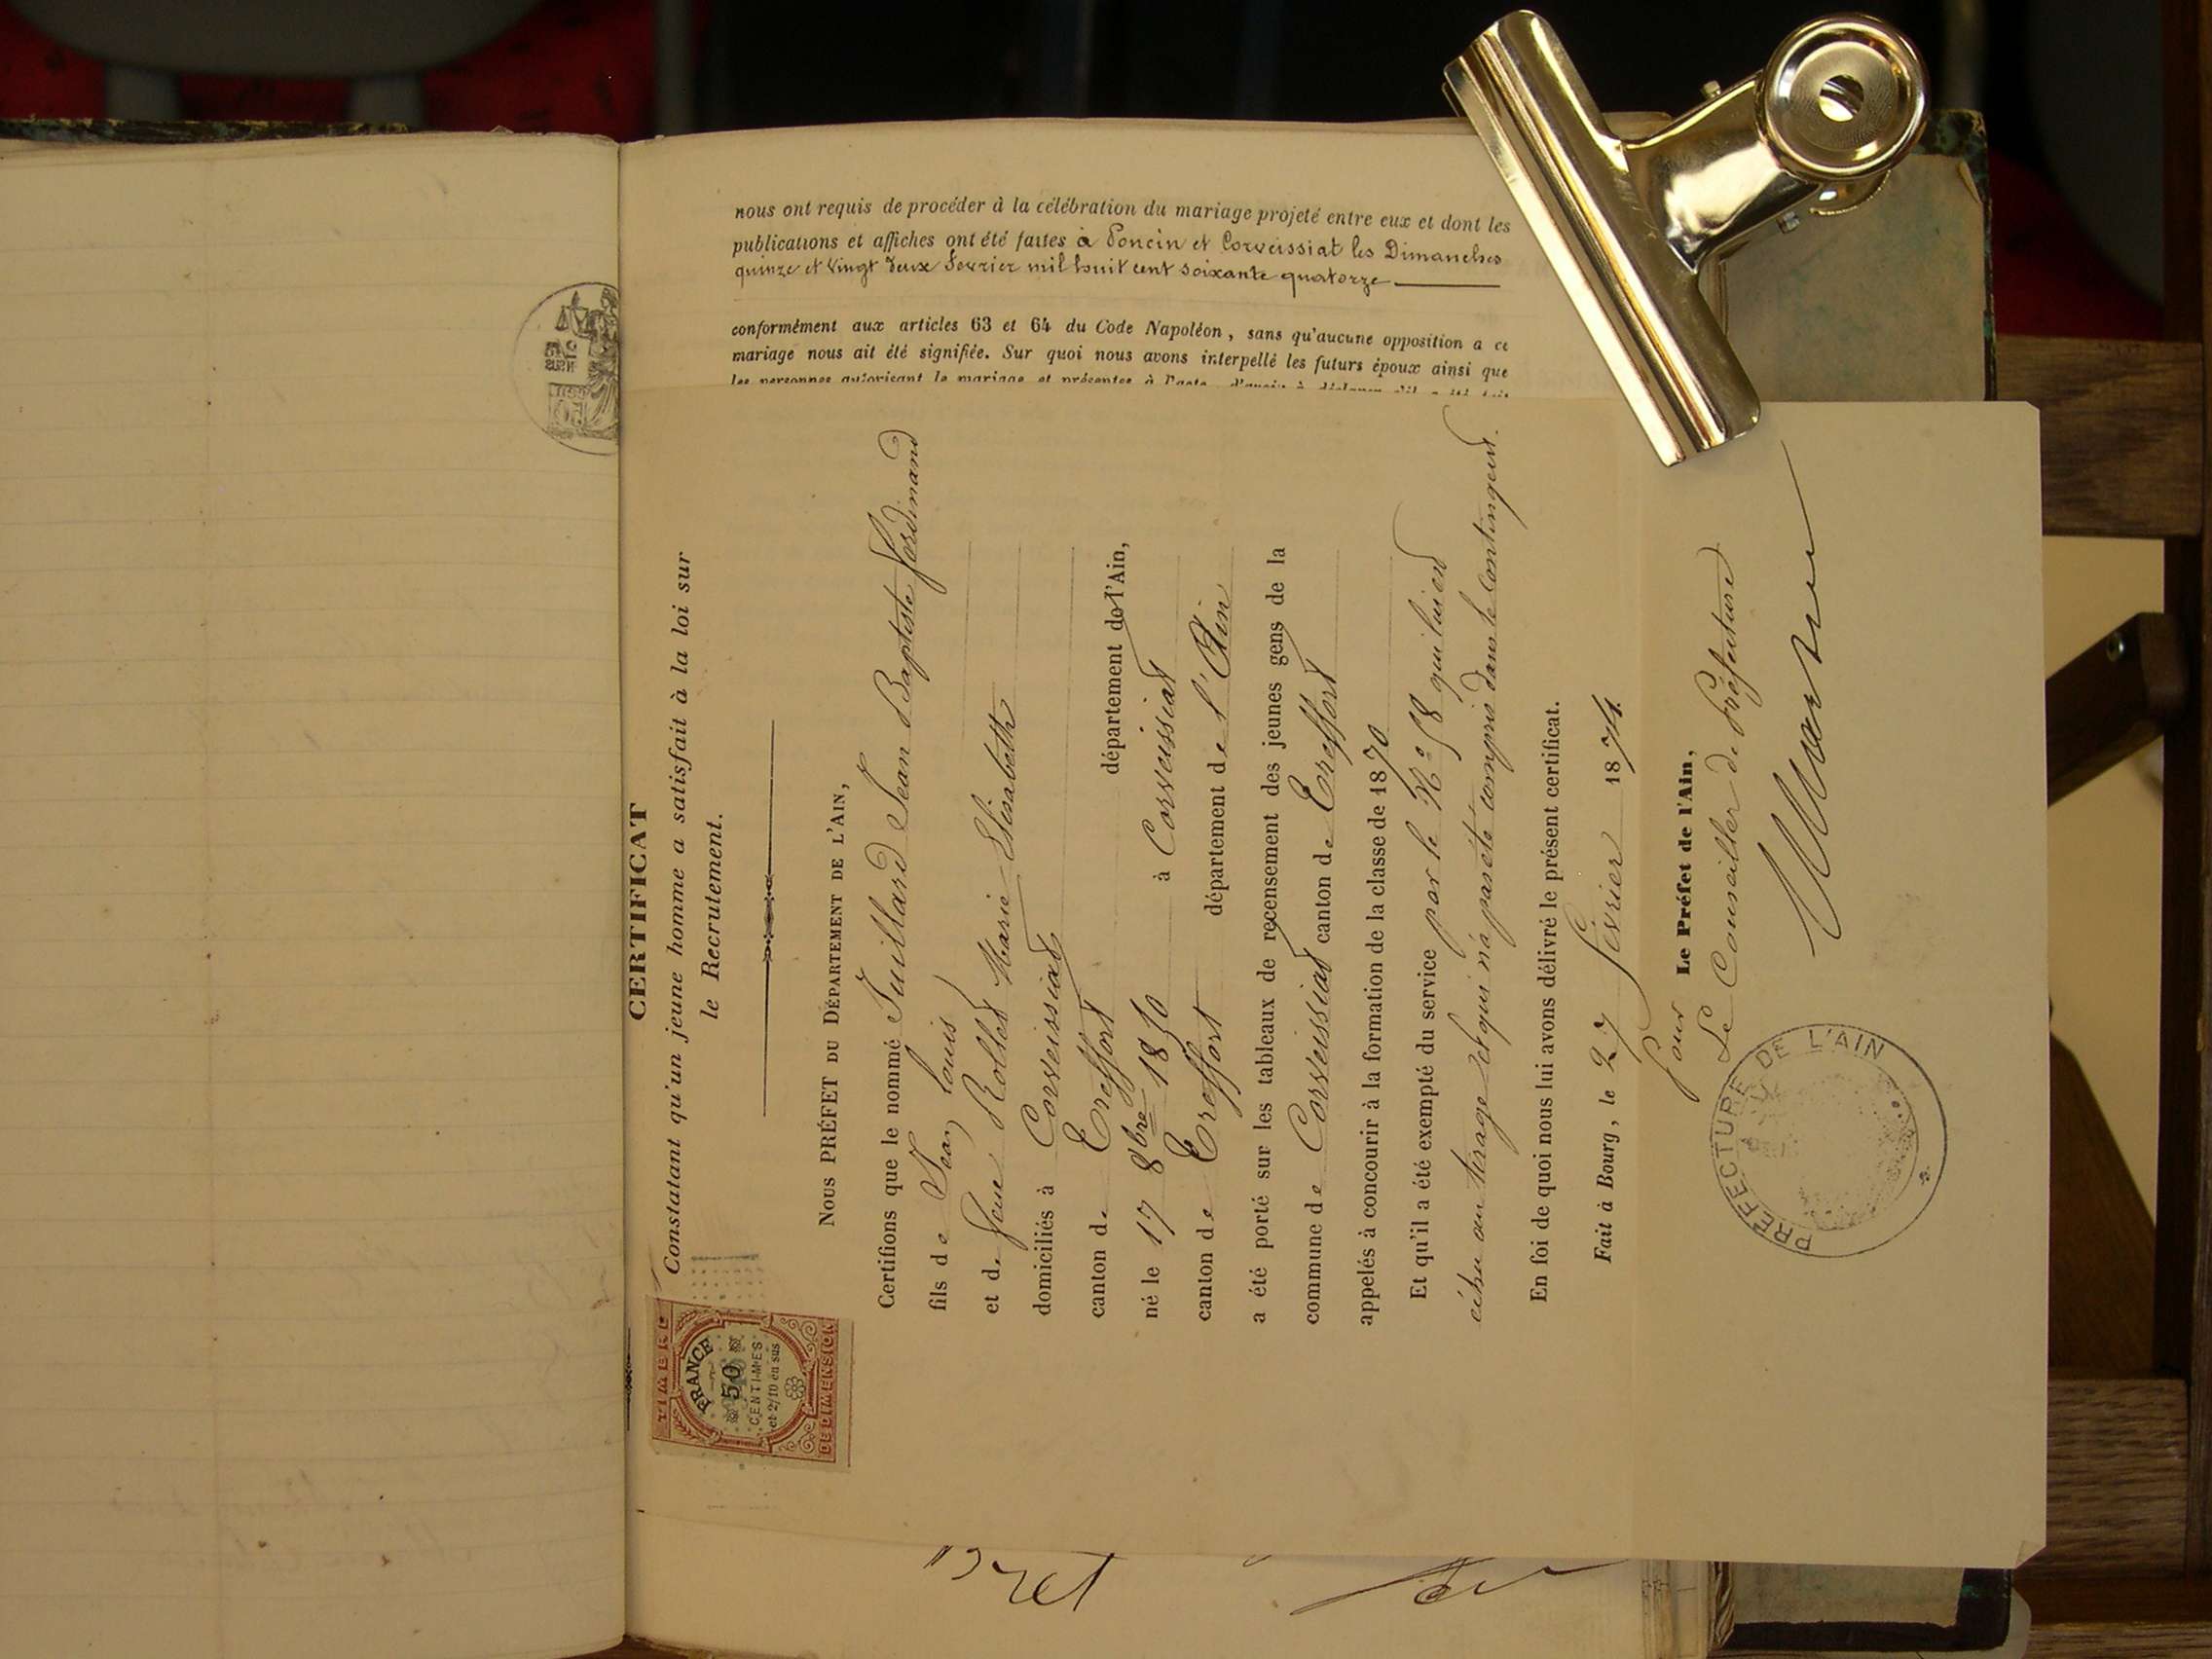 nous ont requis de procéder à la célébration du mariage projeté entre eux et dont les
publications et affiches ont été faites à Poncin et Corveissiat les Dimanches
quinze et vingt deux février mil huit cent soixante quatorze
conformément aux articles 63 et 64 du Code Napoléon, sans qu'aucune opposition a ce
mariage nous ait été signifiée. Sur quoi nous avons interpellé les futurs époux ainsi que
les personnes autorisant le mariage et présentes à l'acte, d'avoir à déclarer s'il a été fait
CERTIFICAT
Constatant qu'un jeune homme a satisfait à la loi sur
le Recrutement.
TIMBRE
FRANCE
50
CENTIMES
et 2/10 en sus
DE DIMENSION
NOUS PRÉFET DU DÉPARTEMENT DE L'AIN,
Certifions que le nommé Juillard Jean Baptiste Ferdinand
fils de Jean Louis
et de feue Rollet Marie Elisabeth
domiciliés à Corveissiat
canton de Treffort département de l'Ain,
né le 17 8bre 1850 à Corveissiat
canton de Treffort département de l'Ain
a été porté sur les tableaux de recensement des jeunes gens de la
commune de Corveissiat canton de Treffort
appelés à concourir à la formation de la classe de 1870
Et qu'il a été exempté du service par le No 58 qui lui est
échu au tirage et qui n'a pas été compris dans le contingent.
En foi de quoi nous lui avons délivré le présent certificat.
Fait à Bourg, le 27 février 1874.
Pour Le Préfet de l'Ain,
Le Conseiller de Préfecture
PRÉFECTURE DE L'AIN